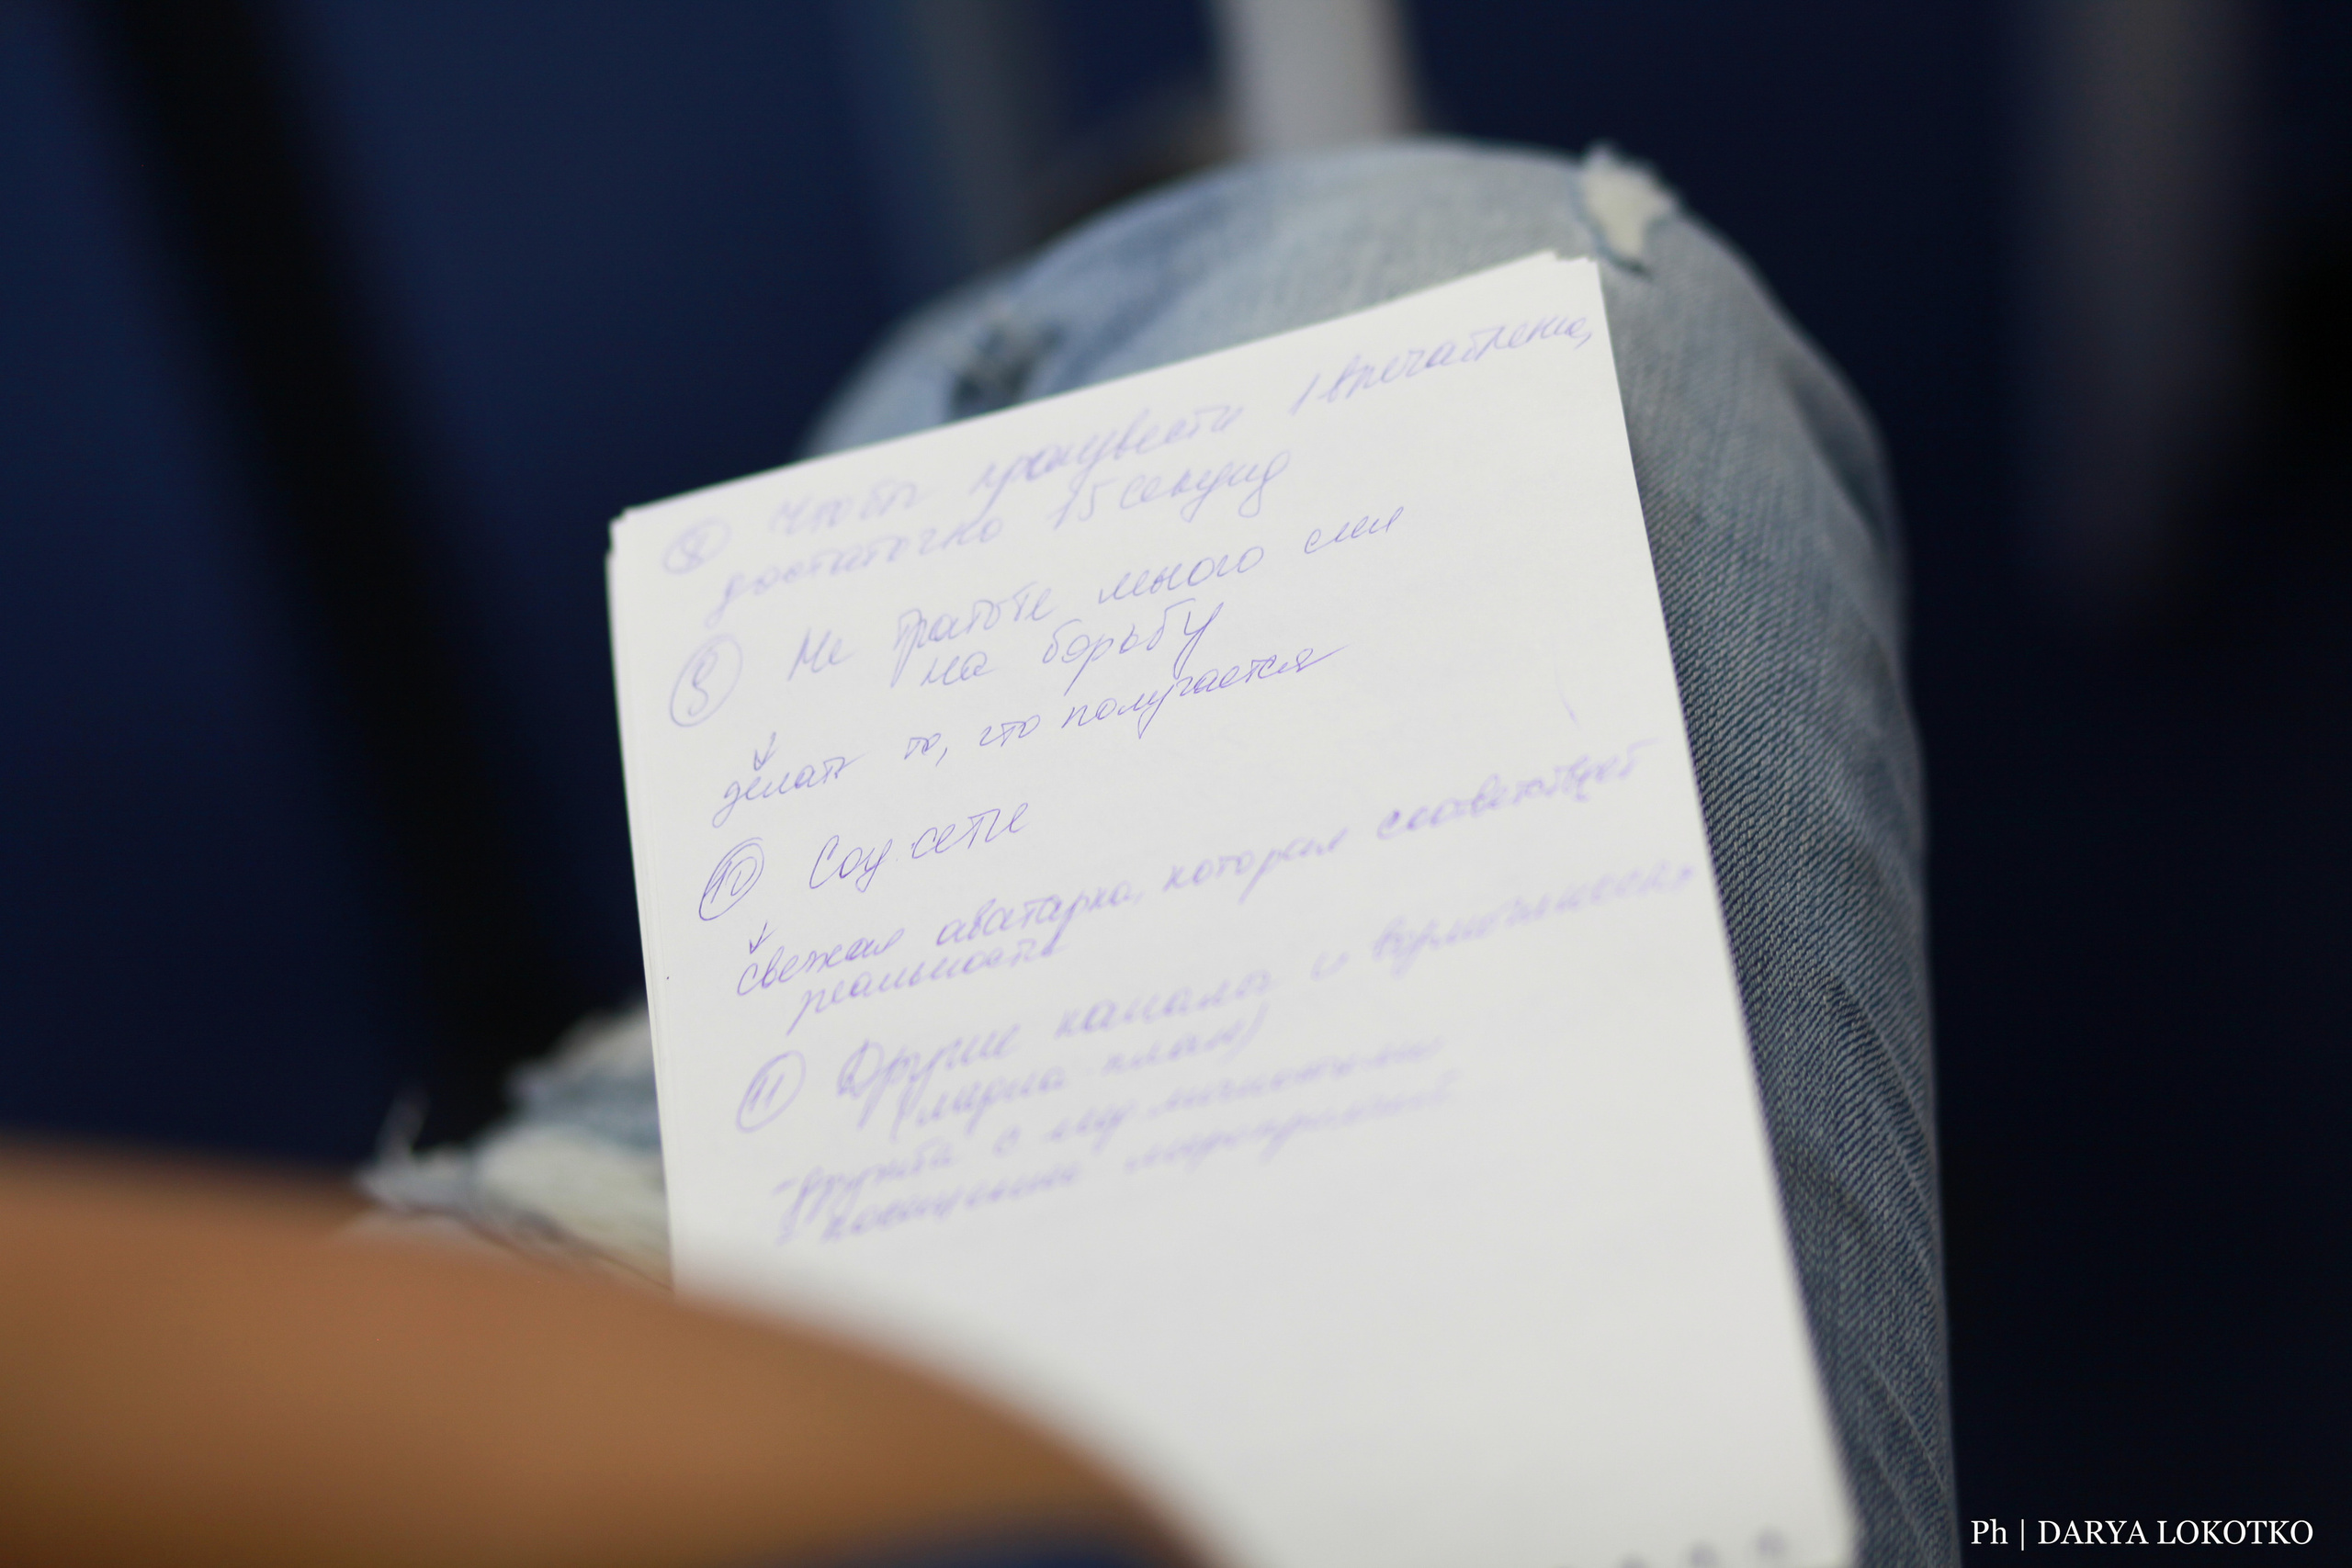 ⑧ Чтобы произвести 1 впечатление,
достаточно 15 секунд
⑨ Не тратьте много сил
на борьбу
↓
делать то, что получается
⑩ Соц. сети
↓
свежая аватарка, которая соответствует
реальности
⑪ Другие каналы и возможности
план)
- дружба с
- посещение мероприятий
Ph | DARYA LOKOTKO